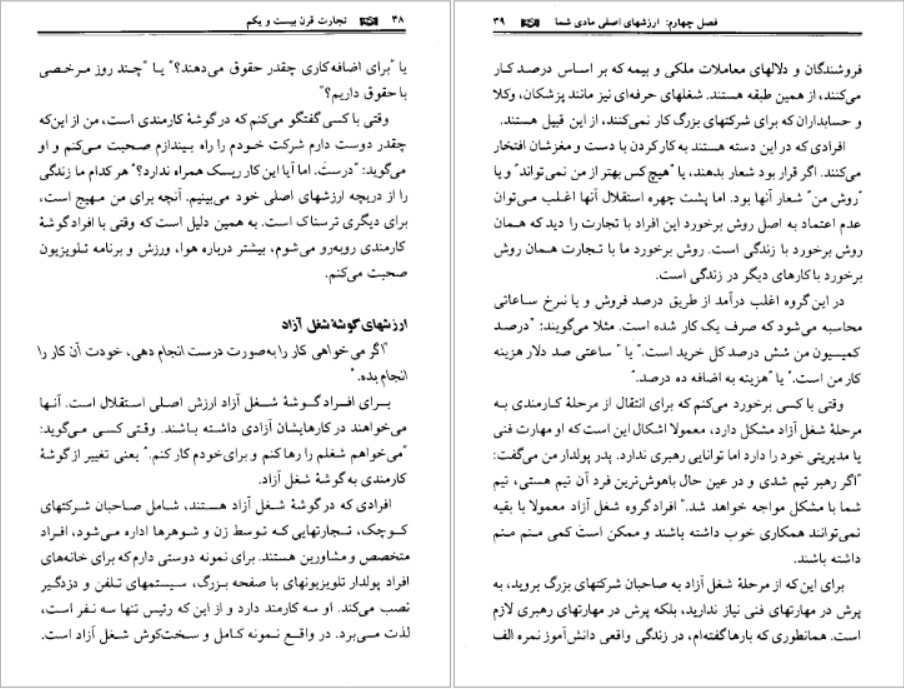 ۳۸ تجارت قرن بیست و یکم
یا "برای اضافه‌کاری چقدر حقوق می‌دهند؟" یا "چند روز مرخصی
با حقوق داریم؟"
وقتی با کسی گفتگو می‌کنم که در گوشهٔ کارمندی است، من از این‌که
چقدر دوست دارم شرکت خودم را راه بیندازم صحبت می‌کنم و او
می‌گوید: "درستَ. اما آیا این کار ریسک همراه ندارد؟" هر کدام ما زندگی
را از دریچه ارزشهای اصلی خود می‌بینیم. آنچه برای من مهیج است،
برای دیگری ترسناک است. به همین دلیل است که وقتی با افراد گوشهٔ
کارمندی روبه‌رو می‌شوم، بیشتر درباره هوا، ورزش و برنامه تلویزیون
صحبت می‌کنم.
ارزشهای گوشهٔ شغل آزاد
"اگر می‌خواهی کار را به‌صورت درست انجام دهی، خودت آن کار را
انجام بده."
برای افراد گوشهٔ شغل آزاد ارزش اصلی استقلال است. آنها
می‌خواهند در کارهایشان آزادی داشته باشند. وقتی کسی می‌گوید:
"می‌خواهم شغلم را رها کنم و برای خودم کار کنم." یعنی تغییر از گوشهٔ
کارمندی به گوشهٔ شغل آزاد.
افرادی که در گوشهٔ شغل آزاد هستند، شامل صاحبان شرکتهای
کوچک، تجارتهایی که توسط زن و شوهرها اداره می‌شود، افراد
متخصص و مشاورین هستند. برای نمونه دوستی دارم که برای خانه‌های
افراد پولدار تلویزیونهای با صفحه بزرگ، سیستمهای تلفن و دزدگیر
نصب می‌کند. او سه کارمند دارد و از این که رئیس تنها سه نفر است،
لذت می‌برد. در واقع نمونه کامل و سخت‌کوش شغل آزاد است.
فصل چهارم: ارزشهای اصلی مادی شما ۳۹
فروشندگان و دلالهای معاملات ملکی و بیمه که بر اساس درصد کار
می‌کنند، از همین طبقه هستند. شغلهای حرفه‌ای نیز مانند پزشکان، وکلا
و حسابداران که برای شرکتهای بزرگ کار نمی‌کنند، از این قبیل هستند.
افرادی که در این دسته هستند به کار کردن با دست و مغزشان افتخار
می‌کنند. اگر قرار بود شعار بدهند، یا "هیچ‌کس بهتر از من نمی‌تواند" و یا
"روش من" شعار آنها بود. اما پشت چهره استقلال آنها اغلب می‌توان
عدم اعتماد به اصل روش برخورد این افراد با تجارت را دید که همان
روش برخورد با زندگی است. روش برخورد ما با تجارت همان روش
برخورد با کارهای دیگر در زندگی است.
در این گروه اغلب درآمد از طریق درصد فروش و یا نرخ ساعاتی
محاسبه می‌شود که صرف یک کار شده است. مثلا می‌گویند: "درصد
کمیسیون من شش درصد کل خرید است." یا "ساعتی صد دلار هزینه
کار من است." یا "هزینه به اضافه ده درصد."
وقتی با کسی برخورد می‌کنم که برای انتقال از مرحلهٔ کارمندی به
مرحلهٔ شغل آزاد مشکل دارد، معمولا اشکال این است که او مهارت فنی
یا مدیریتی خود را دارد اما توانایی رهبری ندارد. پدر پولدار من می‌گفت:
"اگر رهبر تیم شدی و در عین حال باهوش‌ترین فرد آن تیم هستی، تیم
شما با مشکل مواجه خواهد شد." افراد گروه شغل آزاد معمولا با بقیه
نمی‌توانند همکاری خوب داشته باشند و ممکن استَ کمی منم منم
داشته باشند.
برای این که از مرحلهٔ شغل آزاد به صاحبان شرکتهای بزرگ بروید، به
پرش در مهارتهای فنی نیاز ندارید، بلکه پرش در مهارتهای رهبری لازم
است. همانطوری که بارها گفته‌ام، در زندگی واقعی دانش‌آموز نمره الف